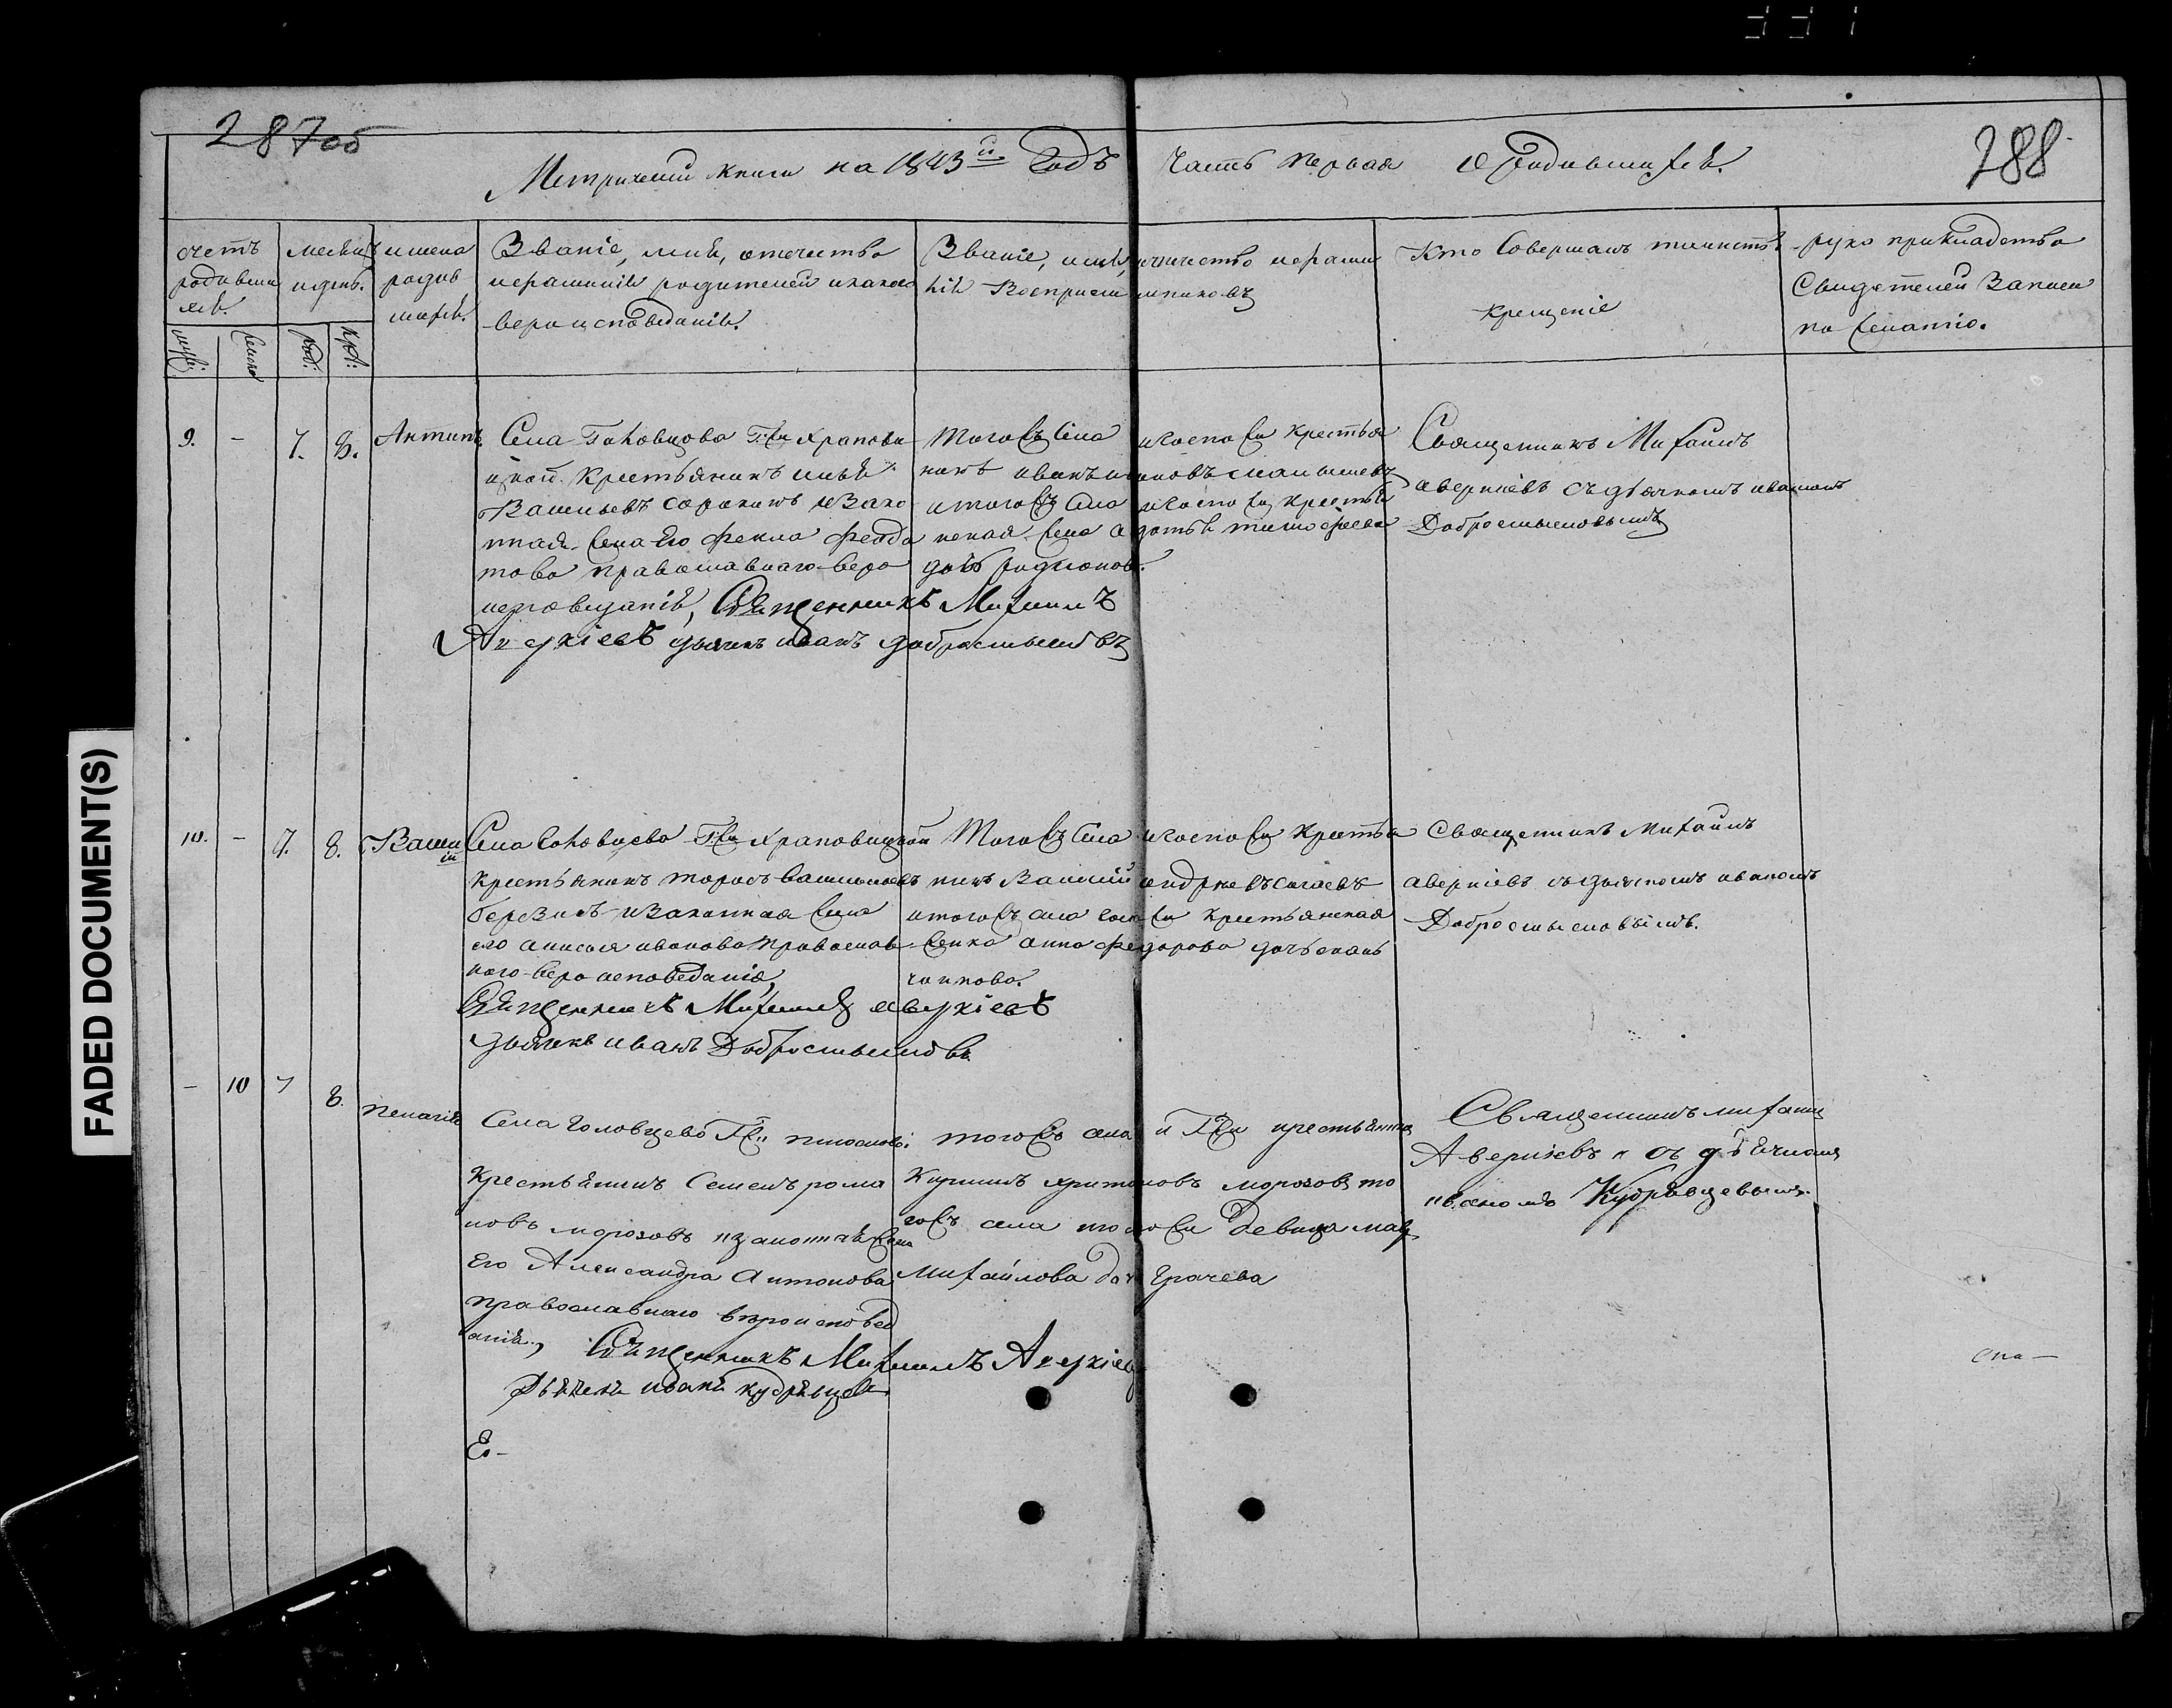 287об
288
Метрической книги на 1843й Годъ Часть первая О Родившихся.
счетъ родившихся.
месяцъ и день.
имена родившихся.
Званіе, имя, отечество и фамилія родителей и какого вероисповеданія.
Званіе, имя, отчество и фамилія Восприемниковъ
Кто Совершалъ таинство крещеніе
рукоприкладство Свидетелей Записи по желанію.
муж:
женск
род:
кре:
9. - 7. 8. Антипъ
Села Головцова Г:жи Храпови
цкой Крестьянинъ
Васильевъ сорокинъ и Зако
нная жена Его Фекла Федо
това православнаго веро
исповеданія, Священникъ Михаилъ
Аверкіевъ дьячекъ иванъ добросмысловъ
Тогожъ Села и Госпожи Крестья
нинъ иванъ
и тогожъ Села и Госпожи Крестья
нская жена
дочь родионова.
Священникъ Михаилъ
аверкіевъ съ дьячкомъ иваномъ
Добросмысловымъ
10. - 7. 8. Васи
лій
Села Головцево Г:жи Храповицкой
Крестьянинъ тарасъ васильевъ
березинъ и Законная жена
его анисья иванова православ
наго вероисповеданія,
Священникъ Михаилъ аверкіевъ
дьячекъ иванъ Добросмысловъ
Тогожъ Села и Госпожи Крестья
нинъ Василій андреевъ
и тогожъ села госпожи Крестьянская
женка анна федорова дочь
Священникъ Михаилъ
аверкіевъ съ дьячкомъ иваномъ
Добросмысловымъ.
- 10 7 8. пелагія
Села Головцево Гжи
Крестьянинъ Семенъ рома
новъ морозовъ и законная жена
Его Александра Антонова
православнаго вероисповед
анія, Священникъ Михаилъ Аверкіевъ
Дьячекъ иванъ кудрявцевъ
тогожъ села и Гжи крестьянинъ
Кирилъ харитоновъ морозовъ то
гожъ села госпожи Девица
Михайлова дочь Грачева
Священникъ михаилъ
Аверкіевъ съ дьячкомъ
иваномъ Кудрявцевымъ.
FADED DOCUMENT(S)